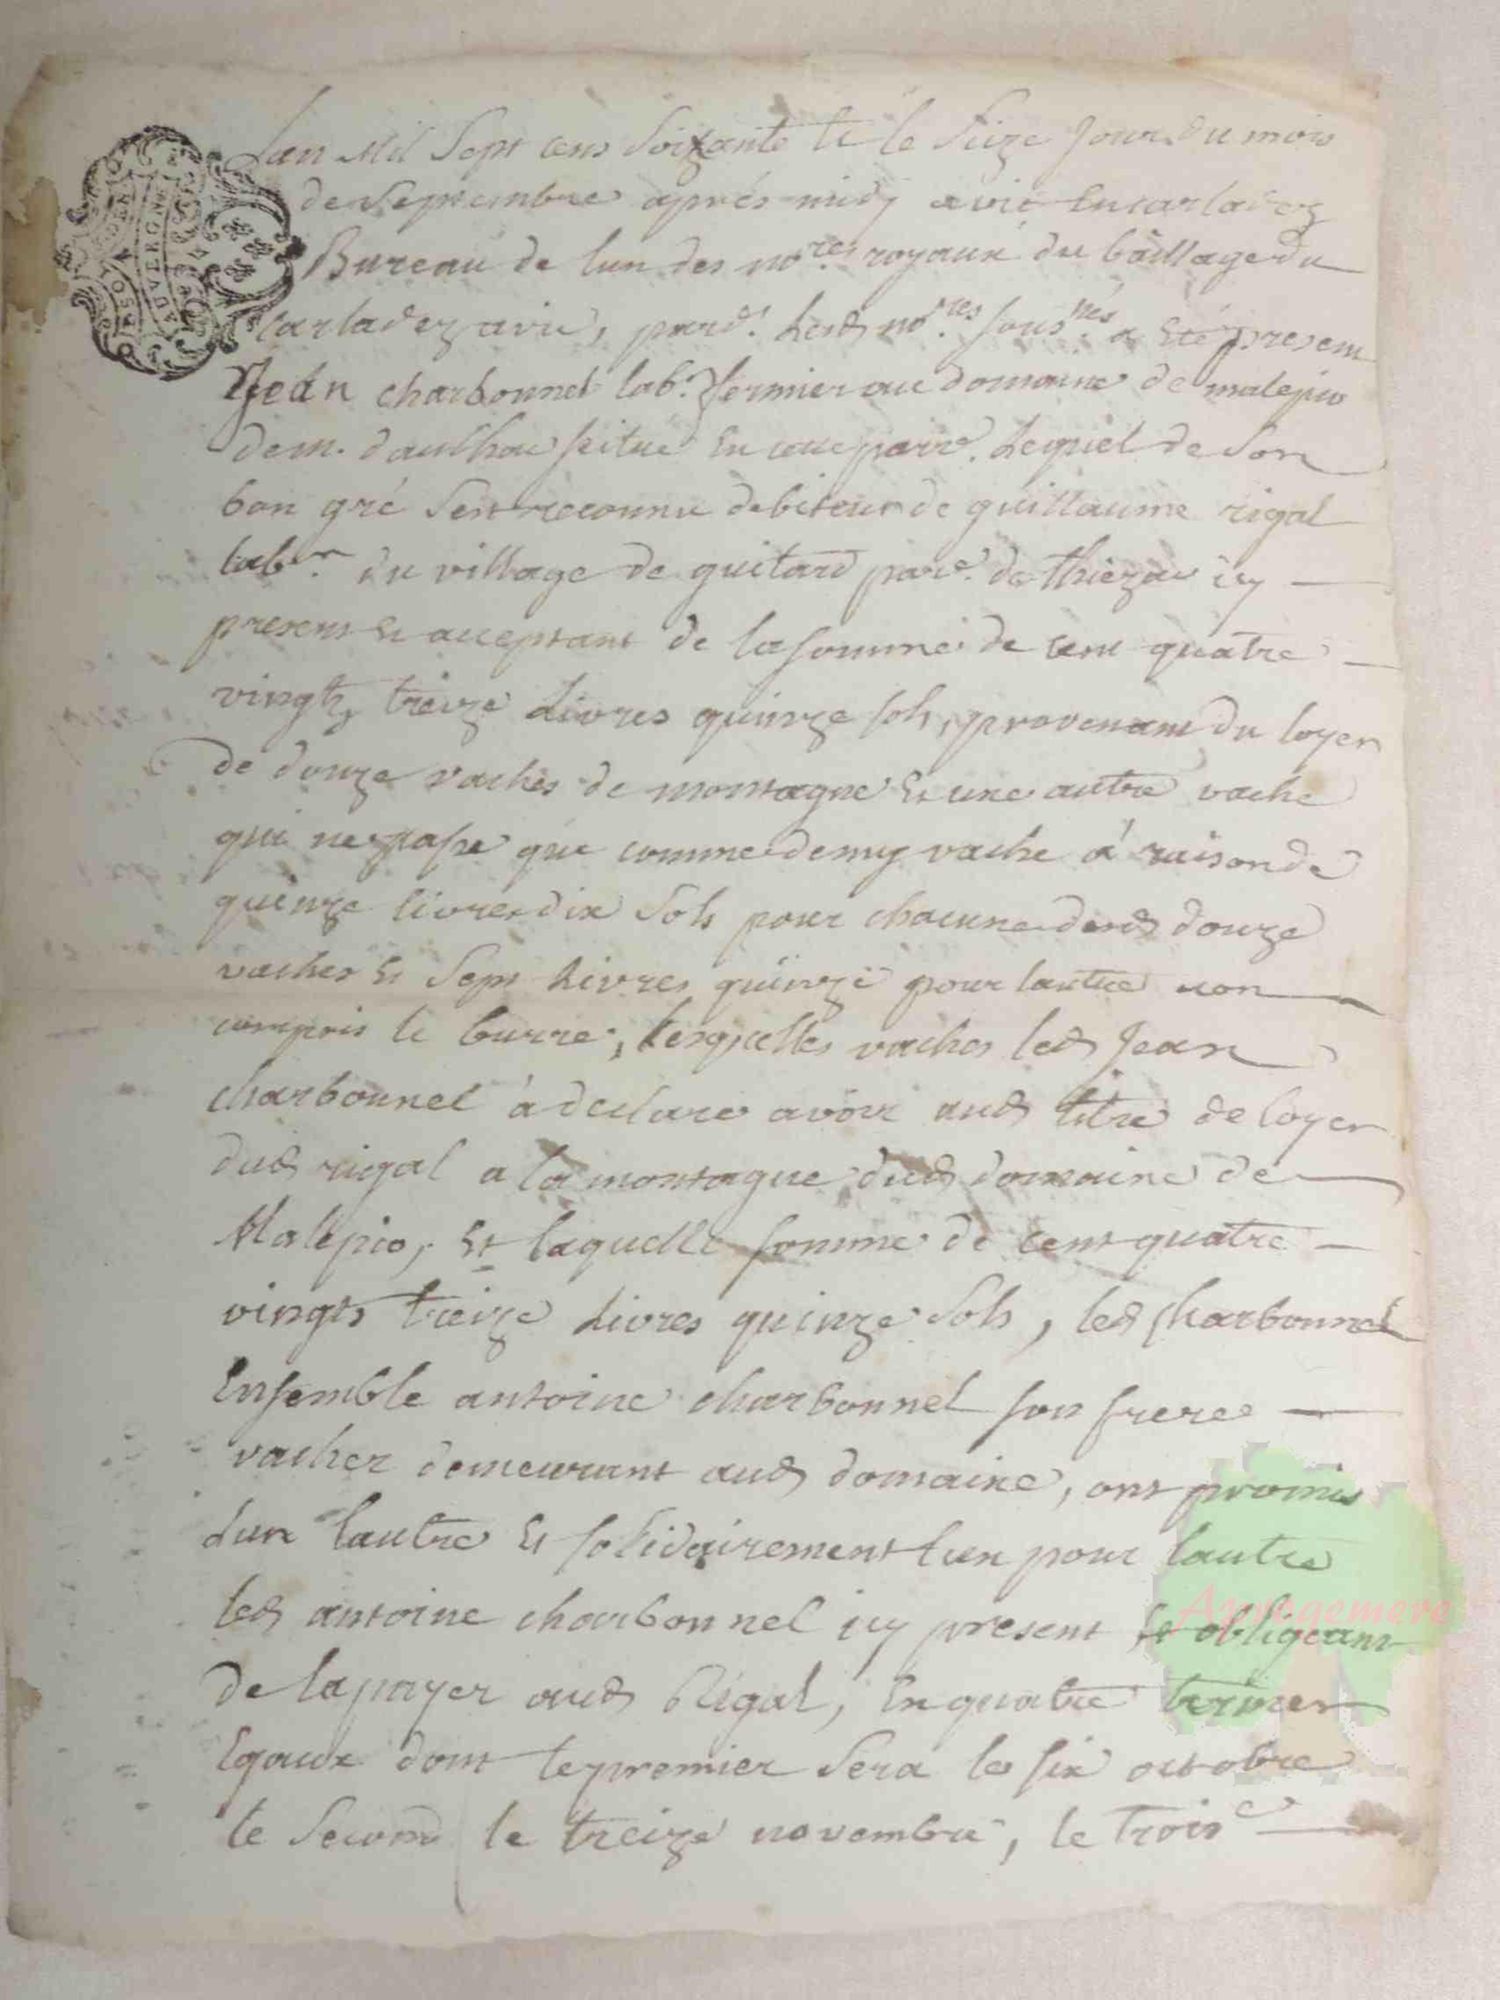 Lan Mil Sept cens Soixante et le Seize Jour du mois
de Septembre après midy a vic en carladez
Bureau de lun des no.res royaux du bailliage du
carladez a vic, pard.t Lesd no.res sous.nés a Eté present
Jean charbonnel lab.r fermier au domaine de malepio
de m. daulhac situé En cette parr.e Lequel de Son
bon gré Sest reconnu debiteur de guillaume rigal
lab.r du village de guitard par.e de thiezac icy
present et acceptant de la somme de cent quatre
vingts treize Livres quinze sols, provenant du loyer
de douze vaches de montagne et une autre vache
qui ne passe que comme demy vache à raison de
quinze livres dix Sols pour chacune desd douze
vaches et Sept Livres quinze pour lautre non
compris le burre, Lesquelles vaches led Jean
charbonnel à declaré avoir aud titre de loyer
dud rigal a la montagne dud domaine de
Malepio, Et laquelle somme de cent quatre
vingts treize Livres quinze Sols, led charbonnel
Ensemble antoine charbonnel son frere
vacher demeurant aud domaine, ont promis
Lun lautre et solidairement lun pour lautre
led antoine charbonnel icy present se obligeant
de la payer aud Rigal, En quatre termes
Egaux dont le premier Sera le six octobre
le Second le treize novembre, le trois.e
AUVERGNE
Aupregemere